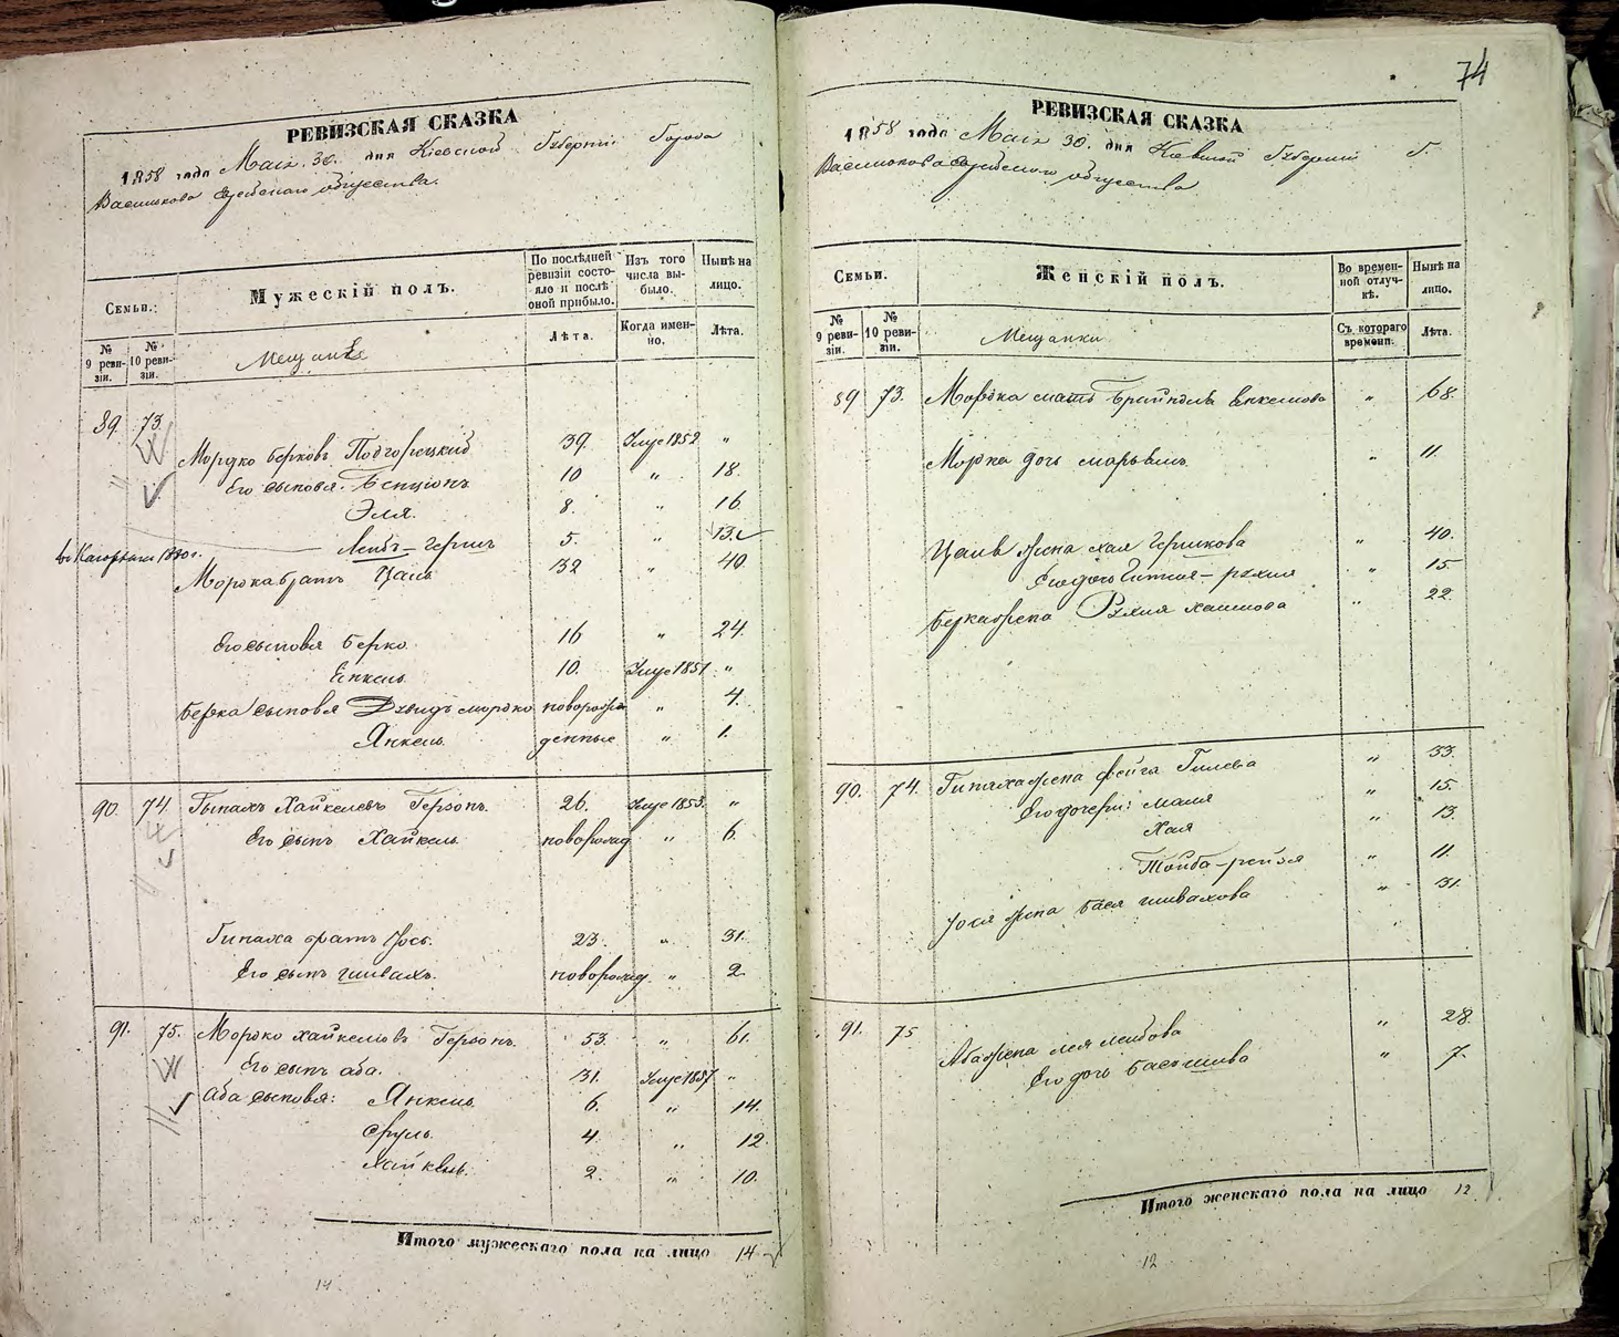 74
РЕВИЗСКАЯ СКАЗКА
1858 года Мая 30. дня Кіевской Губерніи Города
Василькова Еврейскаго общества.
Семьи.
Мужескій полъ.
По послѣдней ревизіи состояло и послѣ оной прибыло.
Изъ того числа выбыло.
Нынѣ на лицо.
№ 9 ревизіи.
№ 10 ревизіи.
Мещане
Лѣта.
Когда именно.
Лѣта.
89. 73.
Мордко Берковъ Подгорецкий 39. Умре 1852 "
Его сыновья: Бенціонъ 10 " 18.
Эля. 8. " 16.
Лейбъ-Гершъ 5. " 13.
Мордка братъ 32 " 40
Его сыновья Берко. 16 " 24.
Енкель 10. Умре 1851 "
Берка сыновья Дувидъ Мордко новорож " 4.
Янкель денные " 1.
90. 74. Хайкелевъ Герзонъ. 26. Умре 1853. "
Его сынъ Хайкель новорожд " 6.
братъ Іось. 23. " 31.
Его сынъ новорожд. " 2
91. 75. Мордко Хайкелювъ Герзонъ. 53. " 61.
Его сынъ Аба. 31. Умре 1857 "
Аба сыновья: Янкель 6. " 14.
Сруль. 4. " 12.
Хайкель. 2. " 10.
Итого мужескаго пола на лицо 14
14
РЕВИЗСКАЯ СКАЗКА
1858 года Мая 30. дня Кіевской Губерніи Г.
Василькова Еврейскаго общества
Семьи.
Женскій полъ.
Во временной отлучкѣ.
Нынѣ на лицо.
№ 9 ревизіи.
№ 10 ревизіи.
Мещанки
Съ котораго времени.
Лѣта.
89 73. Мордка мать " 68.
Мордка дочь " 11.
жена Хая Гершкова " 40.
Его дочь " 15
Берка жена Рухля Хаимова " 22.
90. 74. жена Фейга " 33.
Его дочери: Маля " 15.
Хая " 13.
Тойба-Рейзя " 11.
Іося жена Бася " 31.
91. 75 Аба жена Лея Лейбова " 28.
Его дочь " 7.
Итого женскаго пола на лицо 12.
12